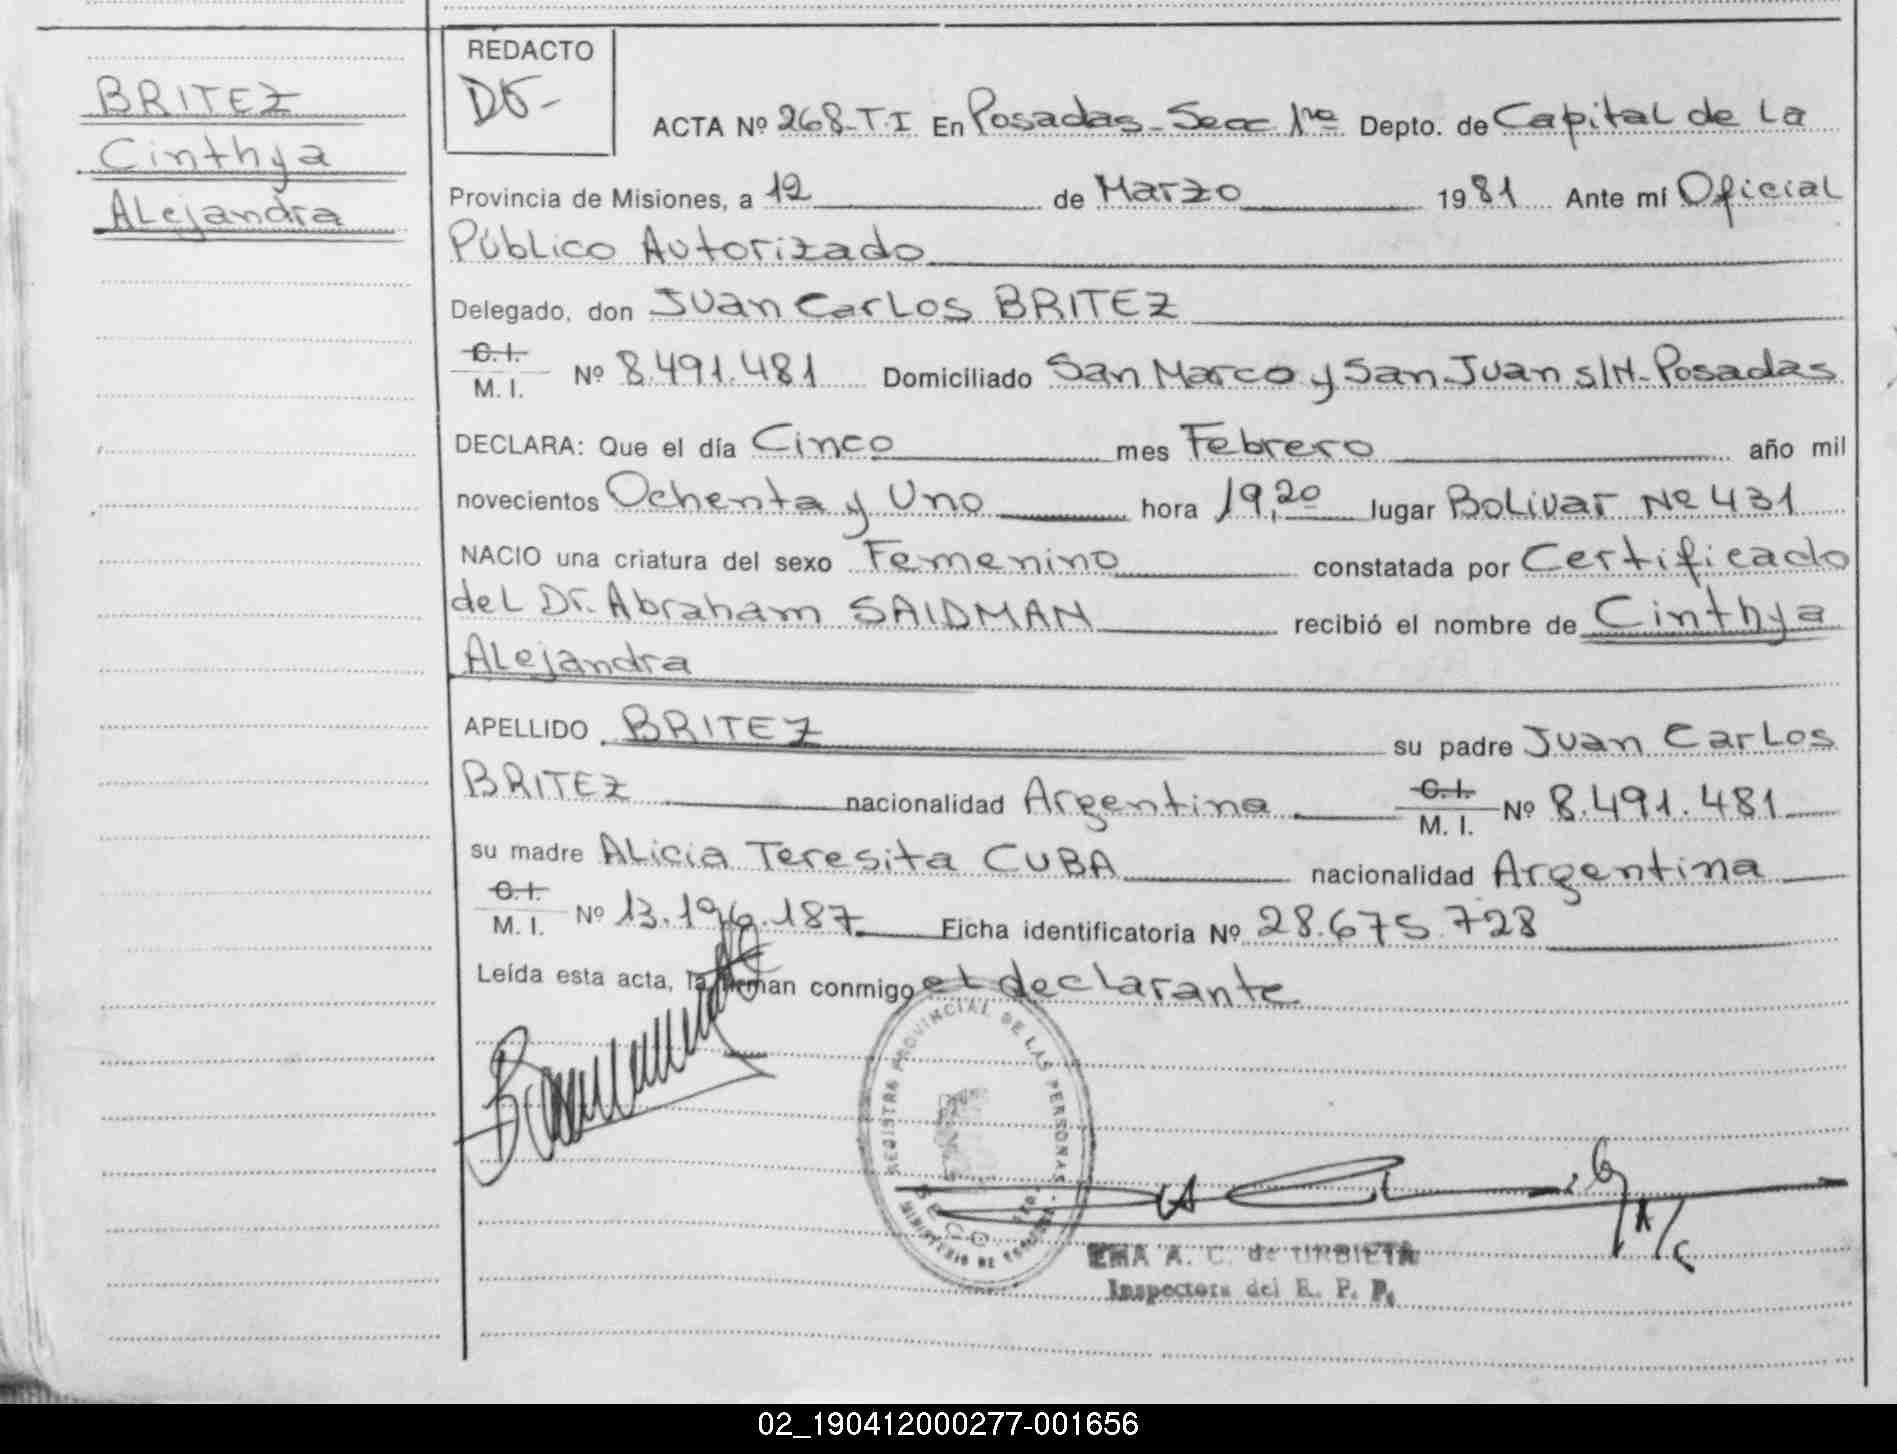 BRITEZ
Cinthya
Alejandra
REDACTO
ACTA Nº 268-T.I En Posadas-Secc 1ra Depto. de Capital de La
Provincia de Misiones, a 12 de Marzo 1981 Ante mí Oficial
Público Autorizado
Delegado, don Juan Carlos BRITEZ
C.I.
M. I. Nº 8.491.481 Domiciliado San Marco y San Juan s/N-Posadas
DECLARA: Que el día Cinco mes Febrero año mil
novecientos Ochenta y Uno hora 19,20 lugar Bolivar Nº 431
NACIO una criatura del sexo Femenino constatada por Certificado
del Dr. Abraham SAIDMAN recibió el nombre de Cinthya
Alejandra
APELLIDO BRITEZ su padre Juan Carlos
BRITEZ nacionalidad Argentina C.I. M. I. Nº 8.491.481
su madre Alicia Teresita CUBA nacionalidad Argentina
C.I.
M. I. Nº 13.196.187 Ficha identificatoria Nº 28.675.728
Leída esta acta, la firman conmigo el declarante
REGISTRO PROVINCIAL DE LAS PERSONAS
MINISTERIO DE
EMA A. C. de URBIETA
Inspectora del R. P. P.
02_190412000277-001656